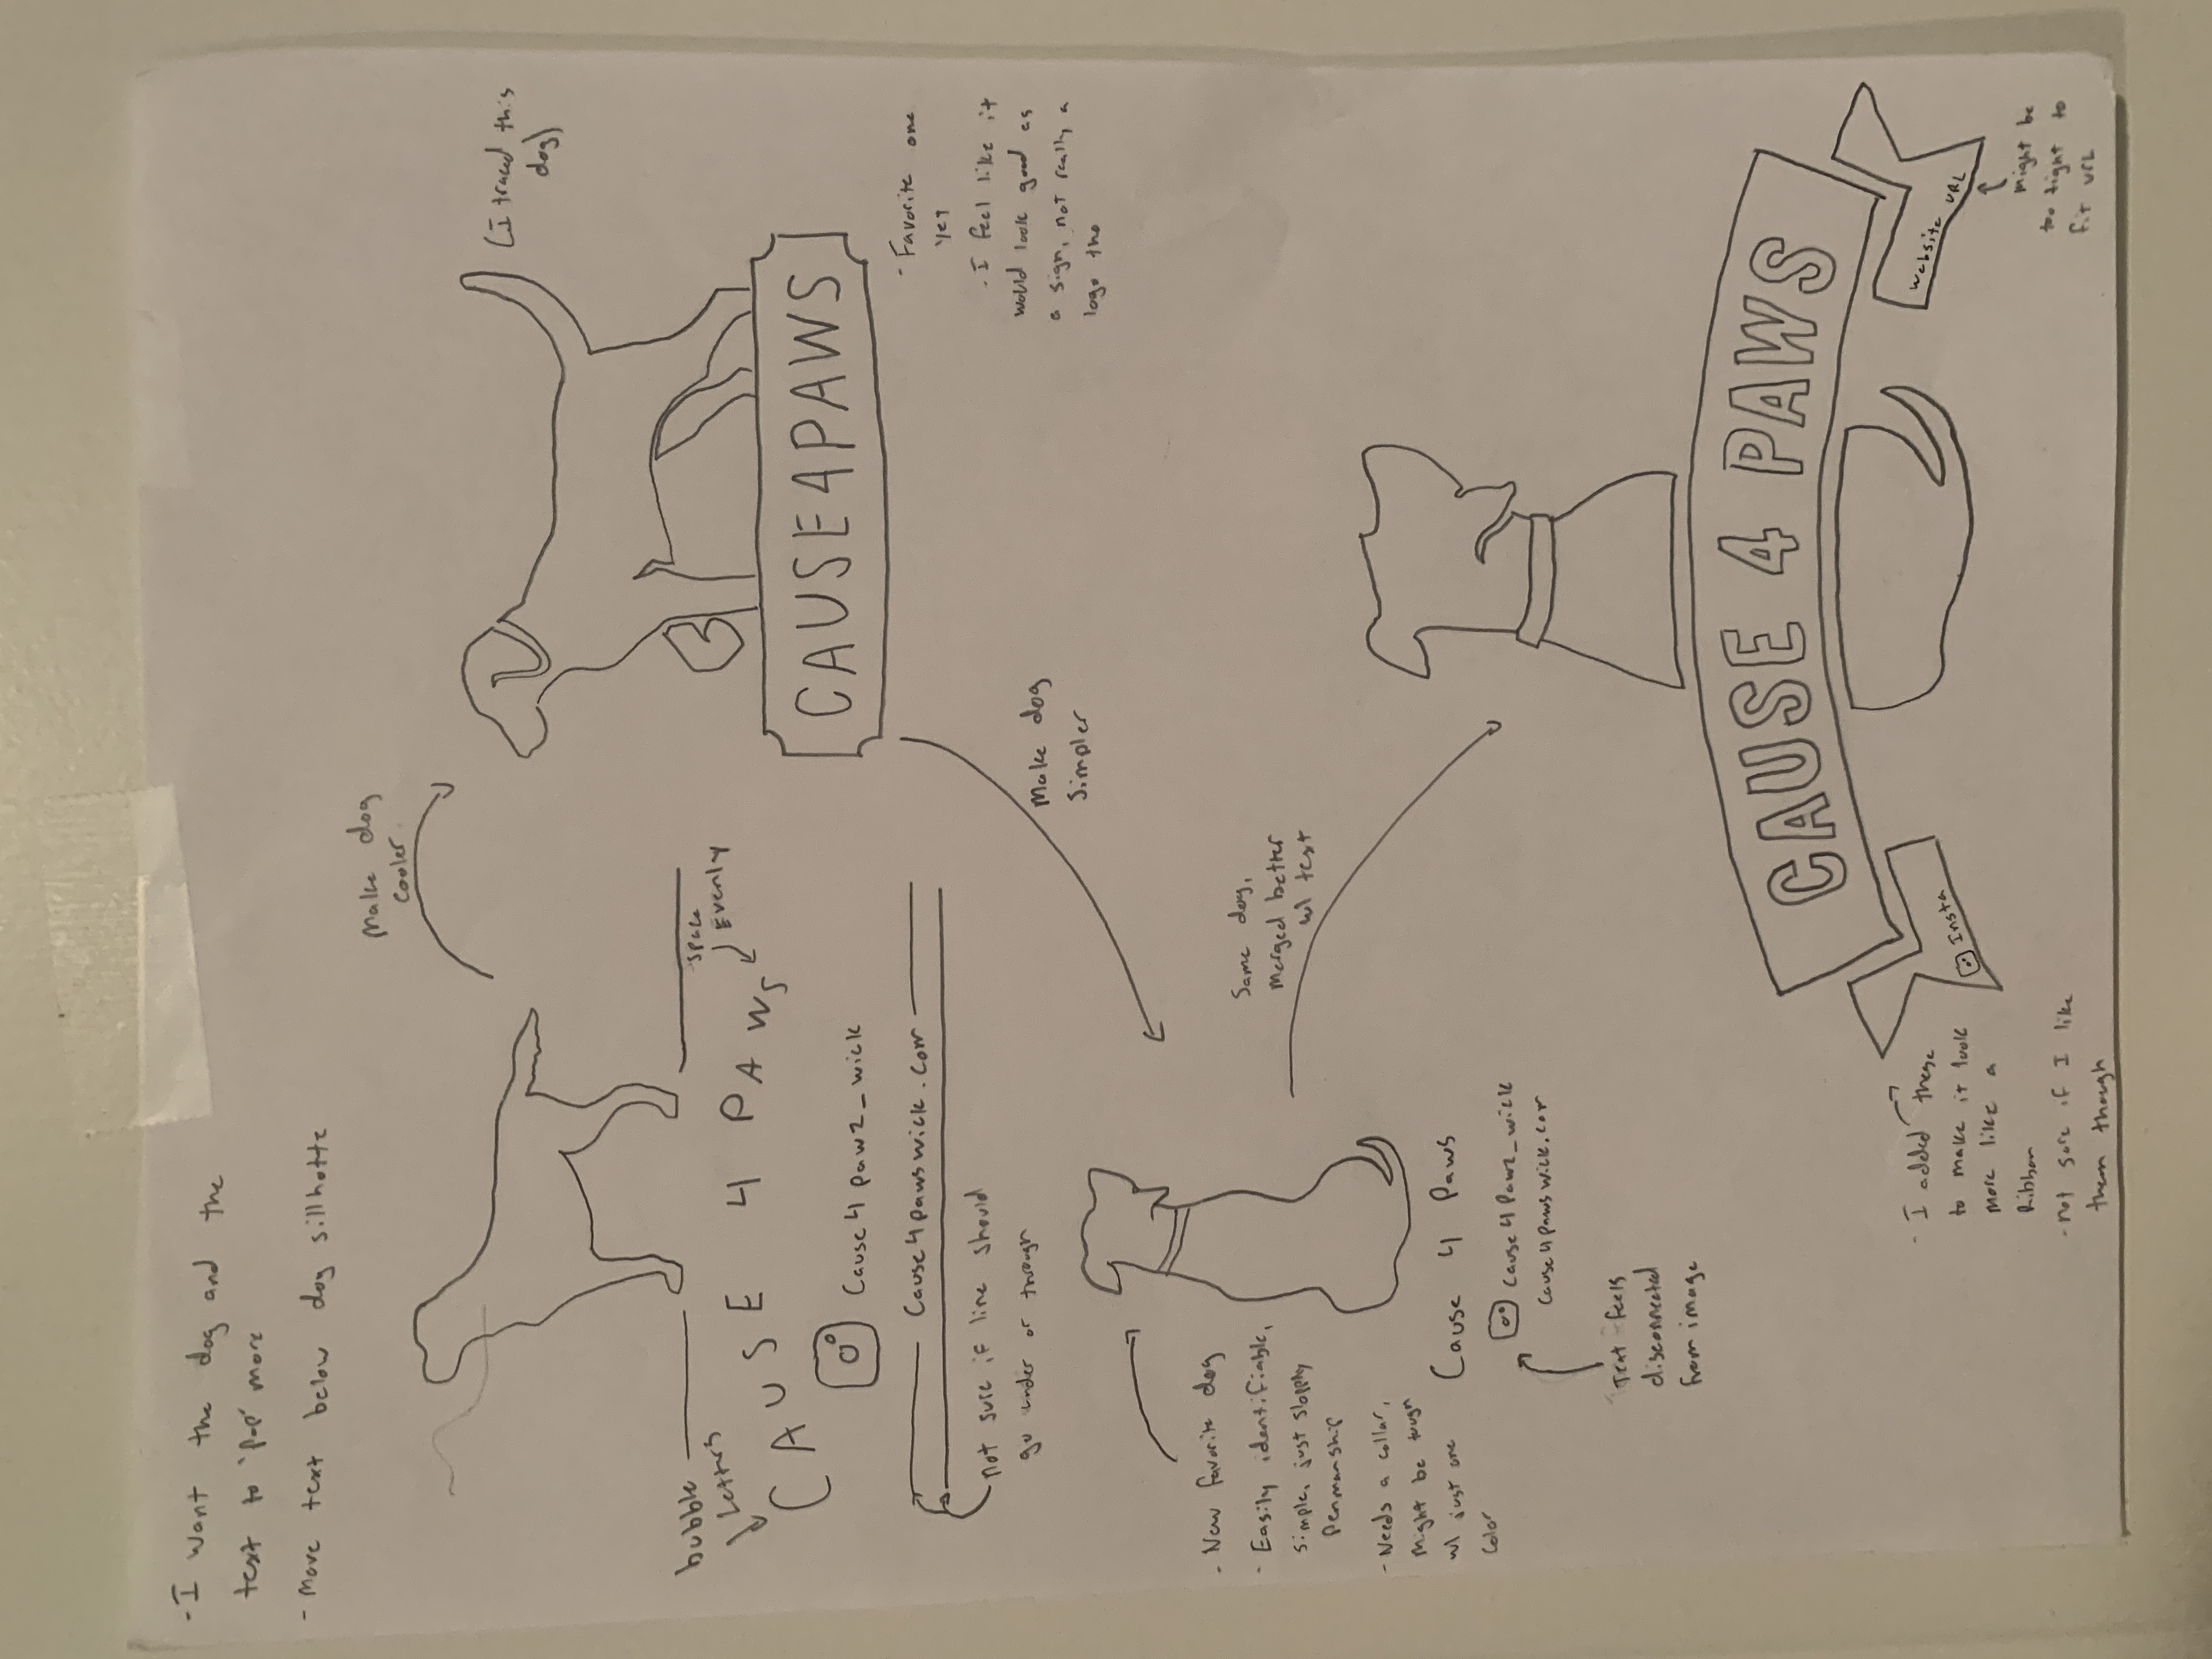 - I want the dog and the
text to 'pop' more
- Move text below dog sillhotte
Make dog
cooler
(I traced this
dog)
bubble
Letters
Space
Evenly
CAUSE 4 PAWS
Cause4pawz_wick
Cause4pawswick.com
not sure if line should
go under or through
CAUSE4PAWS
- Favorite one
yet
- I feel like it
would look good as
a sign, not really a
logo tho
Make dog
Simpler
- New favorite dog
- Easily identifiable,
simple, just sloppy
Penmanship
- Needs a collar,
Might be tough
w/ just one
Color
Same dog,
merged better
w/ text
Cause 4 Paws
Cause4Pawz_wick
Cause4pawswick.com
Text feels
disconnected
from image
CAUSE 4 PAWS
Insta
Website URL
- I added these
to make it look
more like a
Ribbon
- not sure if I like
them though
Might be
too tight to
fit URL